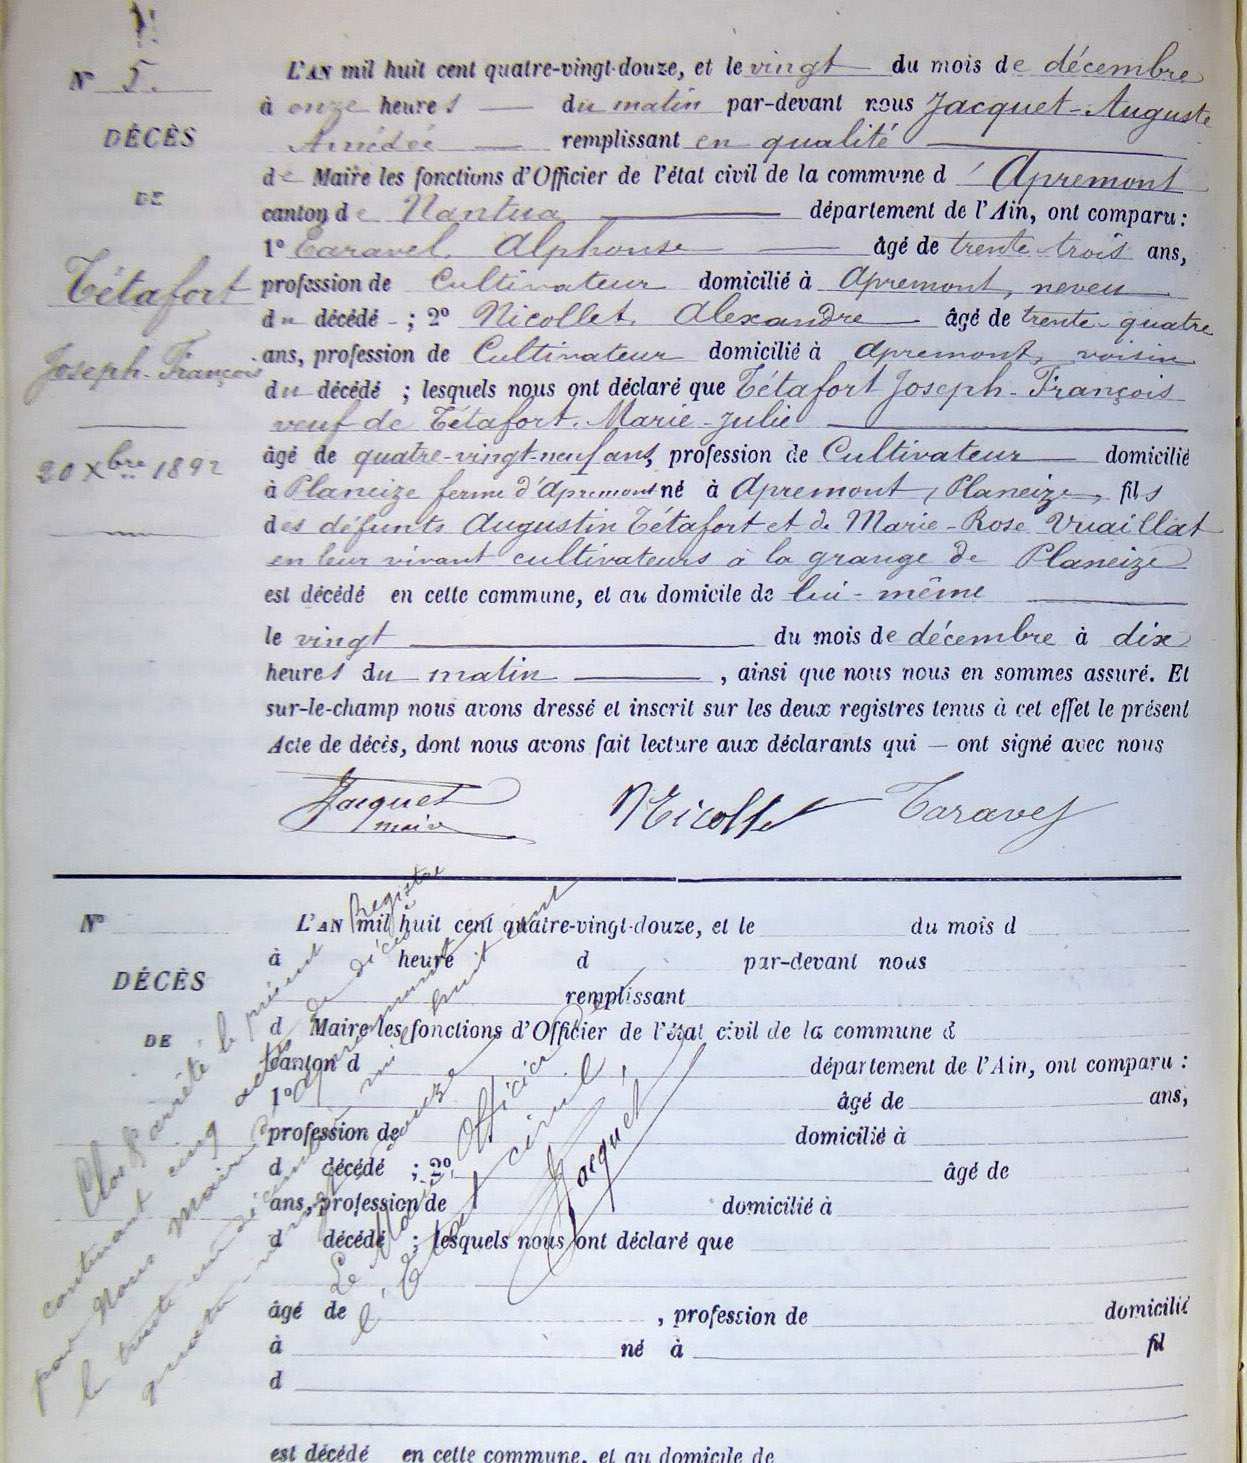 N° 5.
DÉCÈS
DE
Tétafort
Joseph-François
20 Xbre 1892
L'AN mil huit cent quatre-vingt-douze, et le vingt du mois de décembre
à onze heures du matin par-devant nous Jacquet-Auguste
Amédée remplissant en qualité
de Maire les fonctions d'Officier de l'état civil de la commune d'Apremont
canton de Nantua département de l'Ain, ont comparu :
1° Taravel, Alphonse âgé de trente-trois ans,
profession de Cultivateur domicilié à Apremont, neveu
du décédé ; 2° Nicollet, Alexandre âgé de trente-quatre
ans, profession de Cultivateur domicilié à Apremont, voisin
du décédé ; lesquels nous ont déclaré que Tétafort Joseph-François
veuf de Tétafort, Marie-Julie
âgé de quatre-vingt-neuf ans, profession de Cultivateur domicilié
à Planeize ferme d'Apremont né à Apremont, Planeize, fils
des défunts Augustin Tétafort et de Marie-Rose Vuaillat
en leur vivant cultivateurs à la grange de Planeize
est décédé en cette commune, et au domicile de lui-même
le vingt du mois de décembre à dix
heures du matin, ainsi que nous nous en sommes assuré. Et
sur-le-champ nous avons dressé et inscrit sur les deux registres tenus à cet effet le présent
Acte de décès, dont nous avons fait lecture aux déclarants qui — ont signé avec nous
Jacquet
maire
Nicollet
Taravel
N°
DÉCÈS
DE
L'AN mil huit cent quatre-vingt-douze, et le du mois d
à heure d par-devant nous
remplissant
d Maire les fonctions d'Officier de l'état civil de la commune d
canton d département de l'Ain, ont comparu :
1° âgé de ans,
profession de domicilié à
d décédé ; 2° âgé de
ans, profession de domicilié à
d décédé ; lesquels nous ont déclaré que
âgé de , profession de domicilié
à né à fil
d
est décédé en cette commune, et au domicile de
Clos & arrêté le présent Registre
contenant cinq actes de décès
par Nous Maire d'Apremont
le trente-un décembre mil huit cent
quatre-vingt-douze
Le Maire Officier de
l'Etat civil,
Jacquet